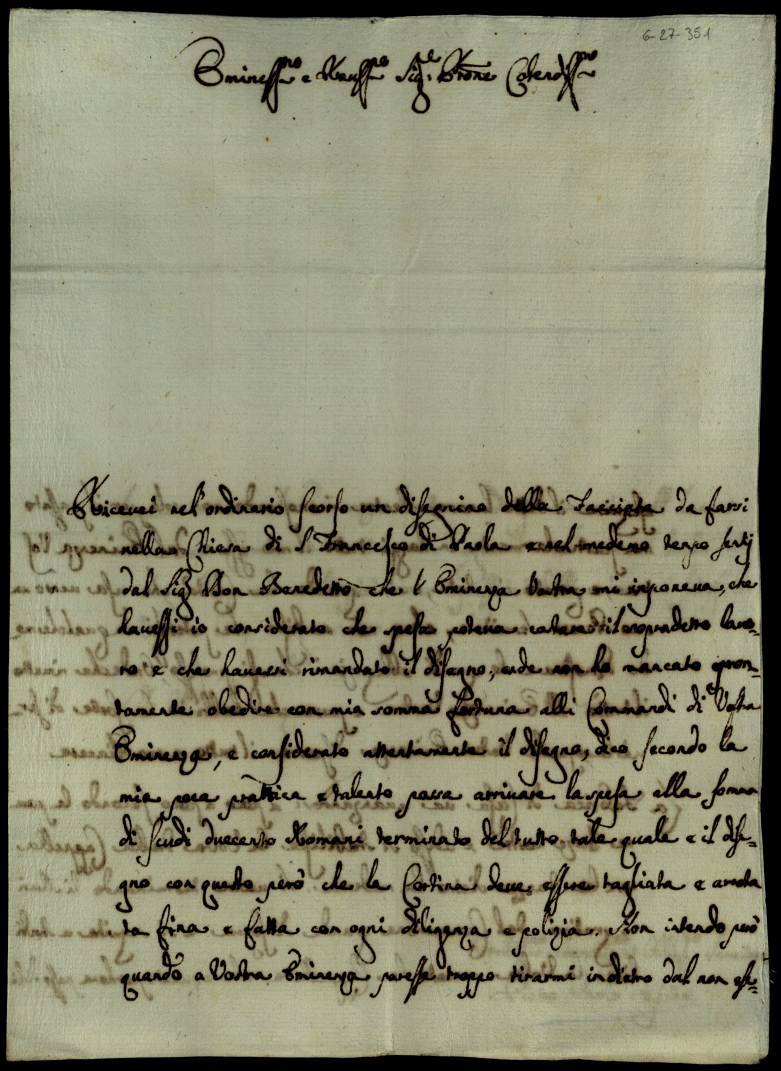 6-27-351
Eminess.mo e Reuess.mo Sig.re Prone Colendiss.mo
Riceuei nel'ordinario scorso un disegnino della Facciata da farsi
nella Chiesa di S. Francesco di Paola e nel medemo tempo
dal Sig. Don Benedetto che l'Eminenza Vostra mi imponeua, che
hauessi io considerato che spesa poteua costare il sopradetto lauo-
ro e che hauessi rimandato il disegno, onde non ho mancato pron-
tamente obedire con mia somma fortuna alli Commandi di Vostra
Eminenza, e considerato attentamente il disegno, dico secondo la
mia poca prattica e talento possa arriuare la spesa alla somma
di scudi duecento Romani terminato del tutto tale quale e il dise-
gno con questo però che la Cortina deue essere tagliata e arrota
ta fina e fatta con ogni diligenza e polizia. Non intendo però
quando a Vostra Eminenza paresse troppo tirarmi indietro dal non ese-